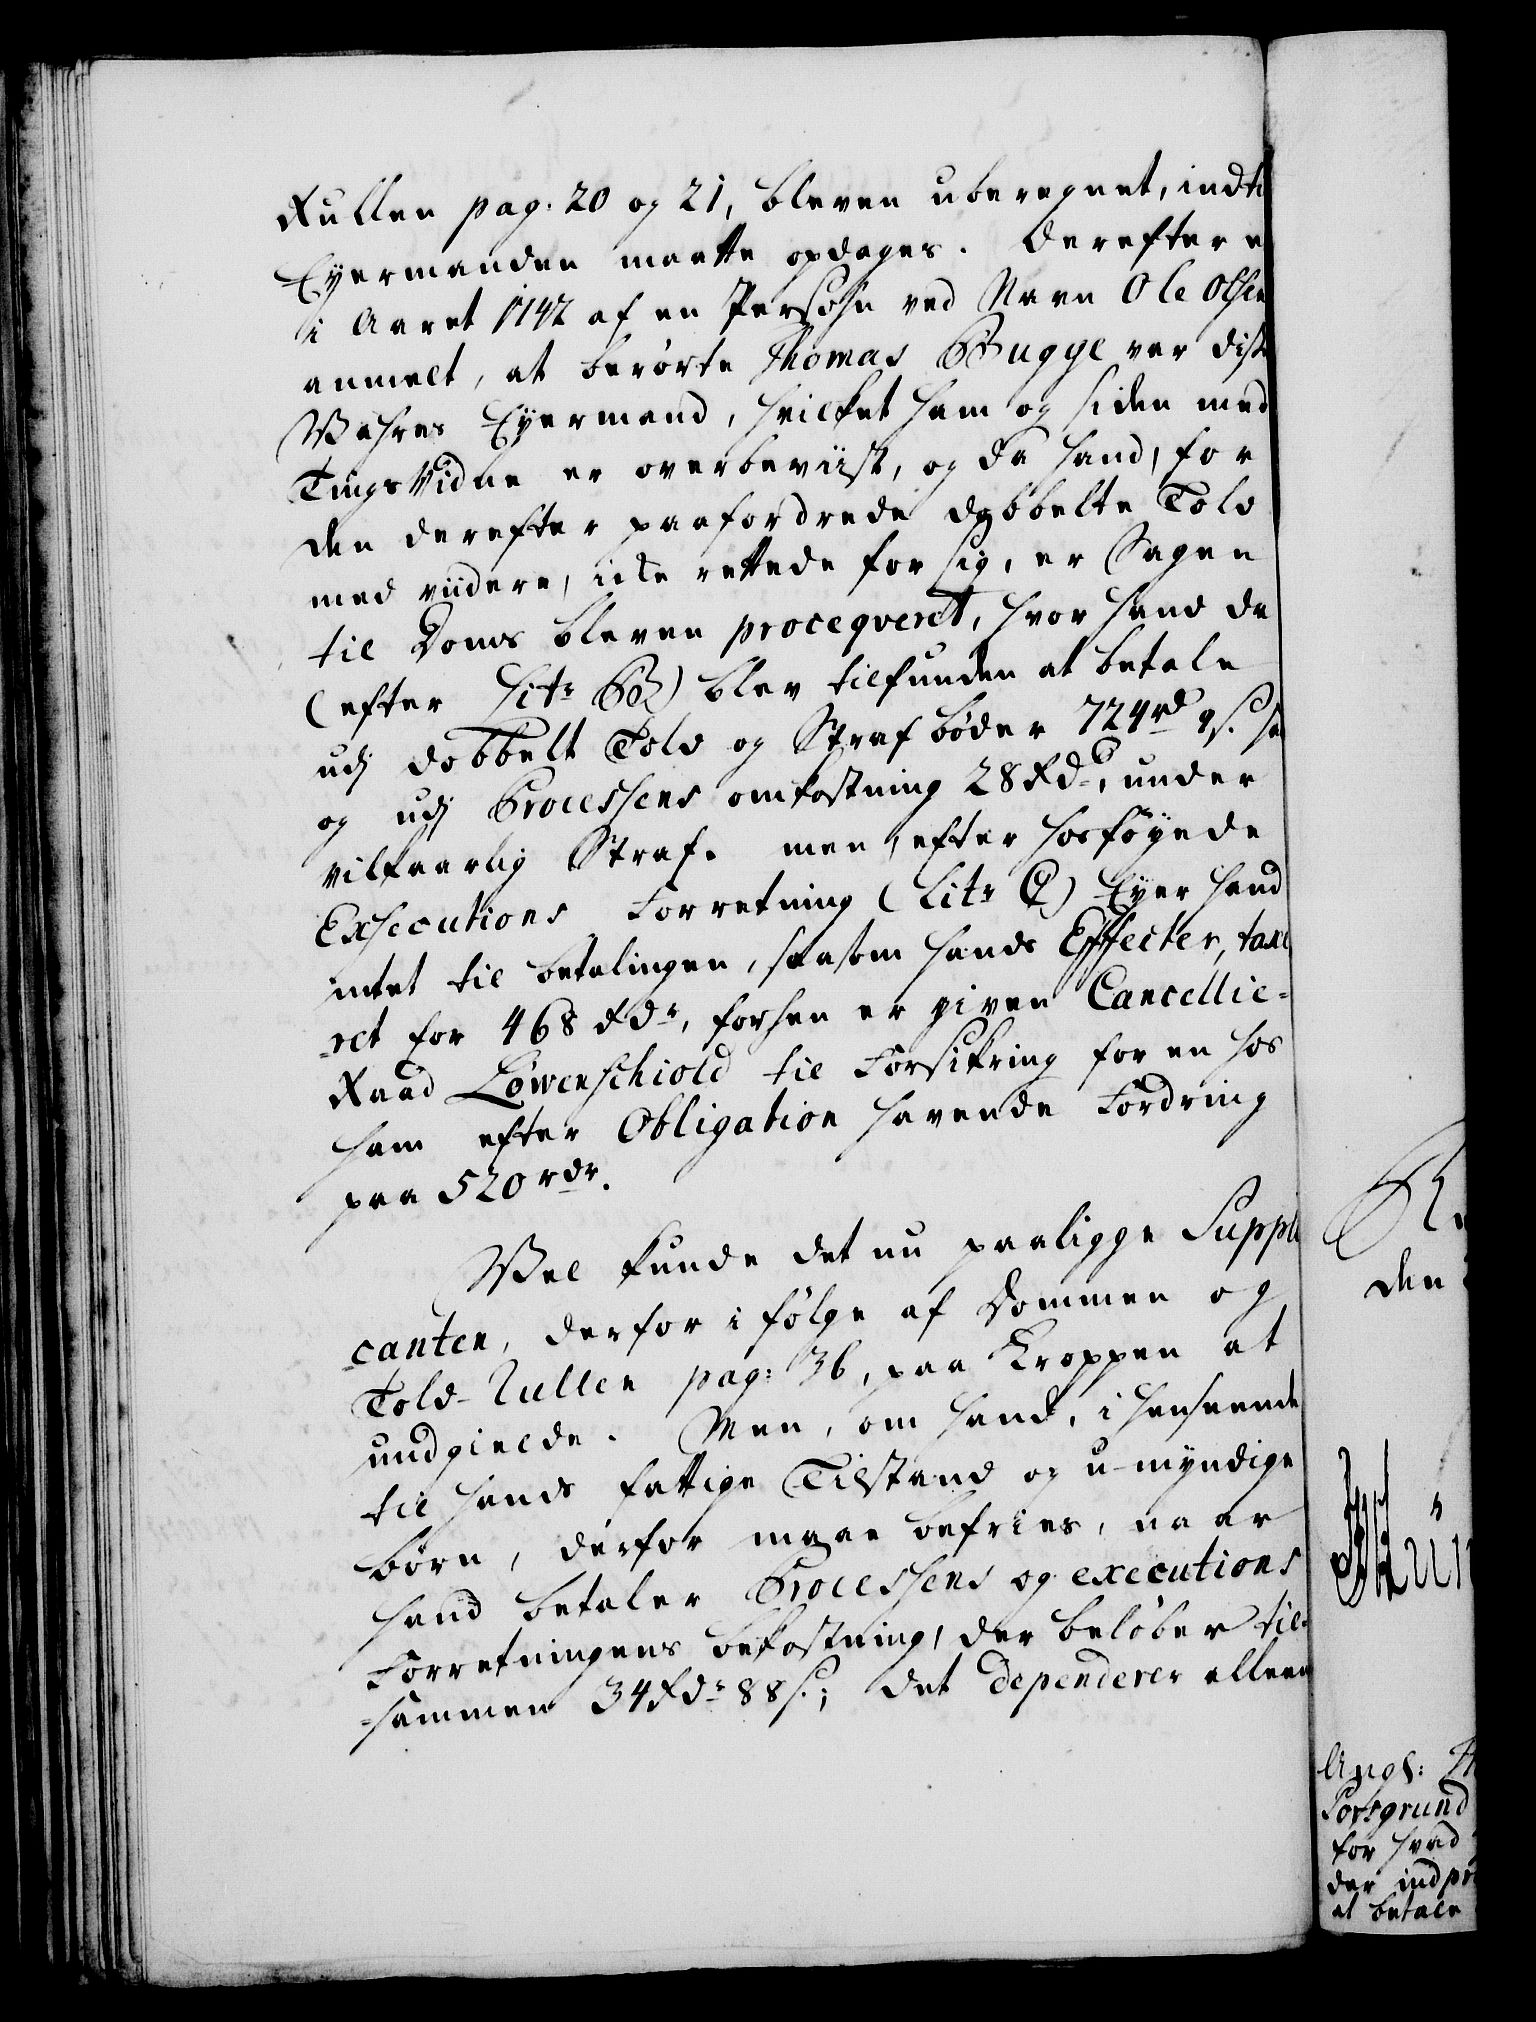 Rullen pag: 20 og 21, bleven uberegnet, indti
Eyermanden maatte opdages. Derefter e
i Aaret 1742 af en Persohn ved Navn Ole Olsen
anmelt, at berørte Thomas Bugge var diss
Wahres Eyermand, hvilket ham og siden med
TingsVidne er overbeviist, og da hand, for
den derefter paafordrede dobbelte Told
med viidere, icke rettede for sig, er Sagen
til Doms bleven proceqveret, hvor hand da
(efter Litr B) blev tilfunden at betale
udj dobbelt Told og Straf bøder 724rd
og udj Processens omkostning 28 Rdr, under
vilkaarlig Straf. men, efter hosføyede
Exsecutions Forretning (Litr C) Eyer hand
intet til betalingen, saasom hands Effecter, taxe
=ret for 468 Rdr, forhen er given Cancellie=
Raad Løwenschiold til Forsikring for en hos
ham efter Obligation havende Fordring
paa 520 rdr.
Wel kunde det nu paaligge Suppli
=canten, derfor i følge af Dommen og
Told-Rullen pag: 36, paa Kroppen at
undgielde. Men, om hand, i henseende
til hands fattige Tilstand og u-myndige
børn, derfor maae befries, naar
hand betaler Processens og executions
Forretningens bekostning, der beløber til=
=sammen 34 Rdr 88 s.; det dependerer alleen
den
Porsgrund
for hvad
der indpr
at betale